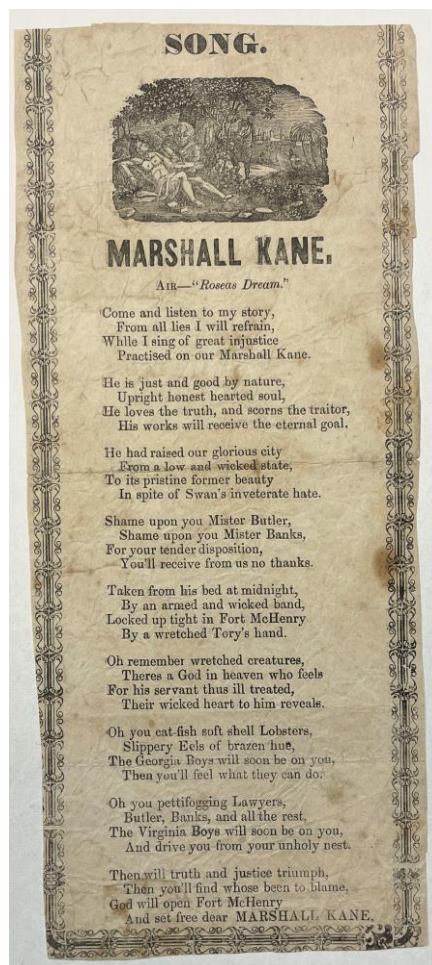 SONG.
MARSHALL KANE.
AIR—"Roseas Dream."
Come and listen to my story,
From all lies I will refrain,
While I sing of great injustice
Practised on our Marshall Kane.
He is just and good by nature,
Upright honest hearted soul,
He loves the truth, and scorns the traitor,
His works will receive the eternal goal.
He had raised our glorious city
From a low and wicked state,
To its pristine former beauty
In spite of Swan's inveterate hate.
Shame upon you Mister Butler,
Shame upon you Mister Banks,
For your tender disposition,
You'll receive from us no thanks.
Taken from his bed at midnight,
By an armed and wicked band,
Locked up tight in Fort McHenry
By a wretched Tory's hand.
Oh remember wretched creatures,
Theres a God in heaven who feels
For his servant thus ill treated,
Their wicked heart to him reveals.
Oh you cat-fish soft shell Lobsters,
Slippery Eels of brazen hue,
The Georgia Boys will soon be on you,
Then you'll feel what they can do.
Oh you pettifogging Lawyers,
Butler, Banks, and all the rest,
The Virginia Boys will soon be on you,
And drive you from your unholy nest.
Then will truth and justice triumph,
Then you'll find whose been to blame,
God will open Fort McHenry
And set free dear MARSHALL KANE.